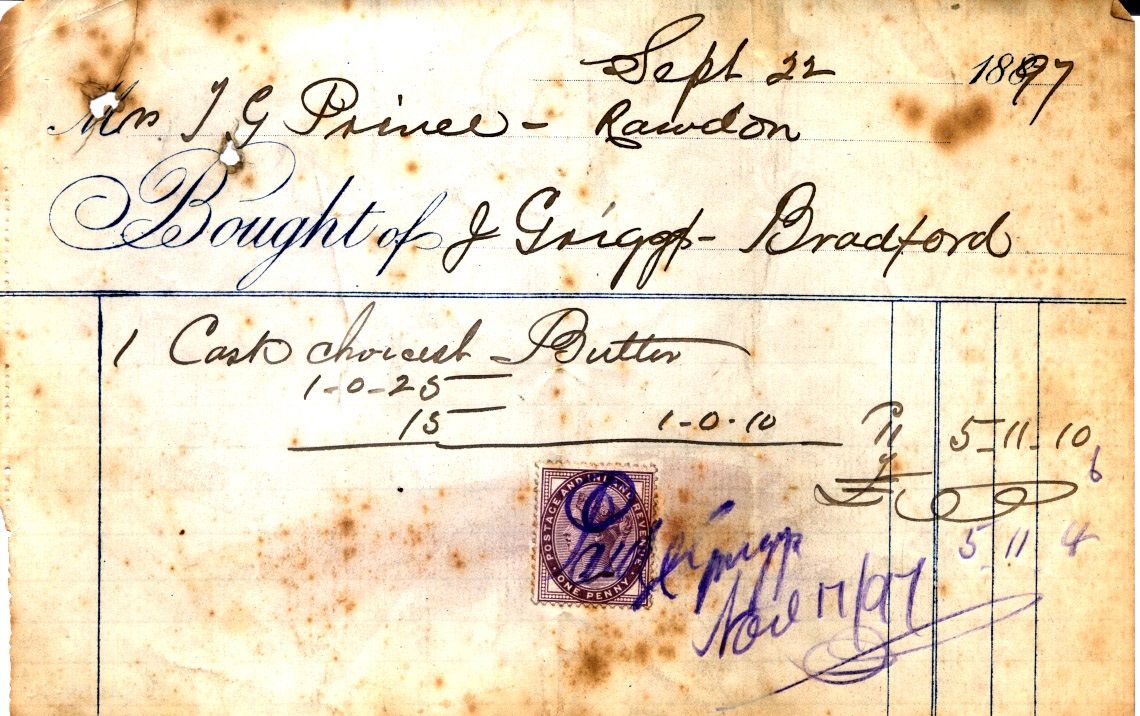 Sept 22 1897
Mrs J G Prince - Rawdon
Bought of J Griggs - Bradford
1 Cask choicest Butter
1-0-25
15 1-0-10 5-11-10
6
5 11 4
POSTAGE AND INLAND REVENUE
ONE PENNY
Nov 17/97